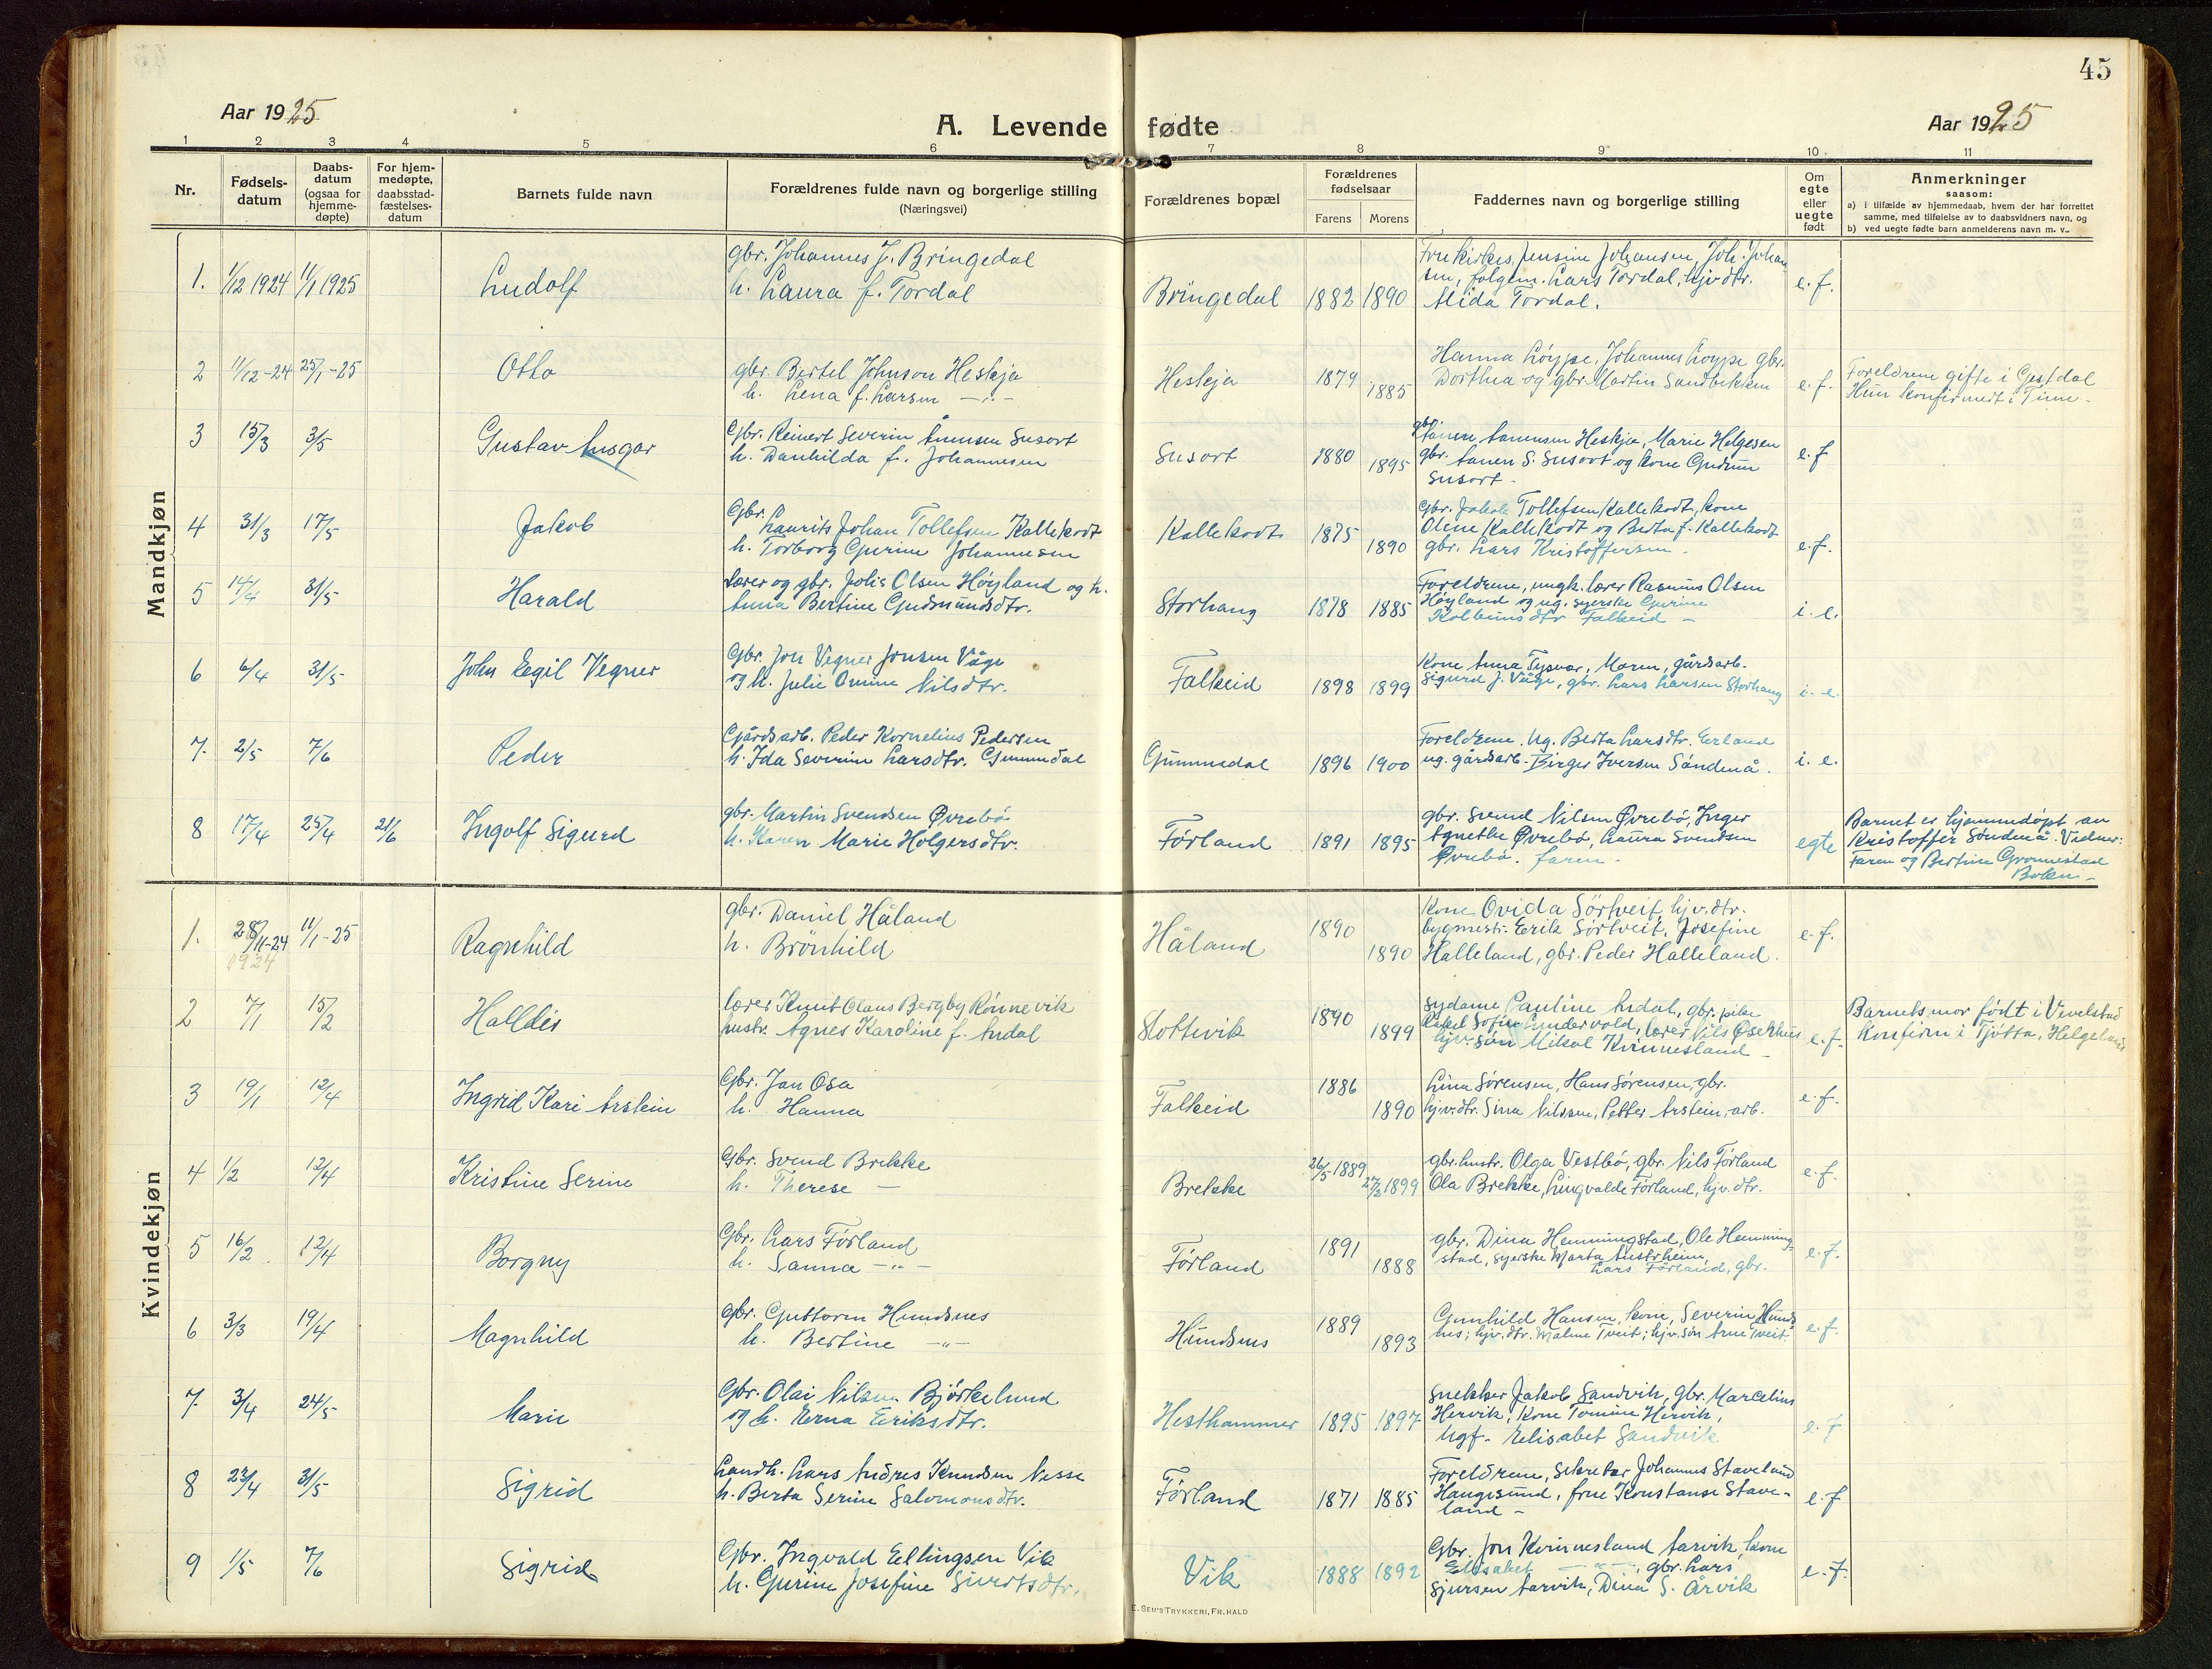 45
Aar 1925
A. Levende fødte
Aar 1925
1 2 3 4 5 6 7 8 9 10 11
Nr.
Fødsels-
datum
Daabs-
datum
(ogsaa for
hjemme-
døpte)
For hjem-
medøpte,
daabsstad-
fæstelses-
datum
Barnets fulde navn
Forældrenes fulde navn og borgerlige stilling
(Næringsvei)
Forældrenes bopæl
Forældrenes
fødselsaar
Farens Morens
Faddernes navn og borgerlige stilling
Om
egte
eller
uegte
født
Anmerkninger
saasom:
a) i tilfælde av hjemmedaab, hvem der har forrettet
samme, med tilføielse av to daabsvidners navn, og
b) ved uegte fødte barn anmelderens navn m. v..
Mandkjøn
1. 1/12 1924 11/1 1925 Ludolf
gbr. Johannes J. Bringedal
h. Laura f. Tordal
Bringedal 1882 1890
Jensine Johansen, Joh. Johan
sen, Lars Tordal, hjv. dtr.
Alida Tordal.
e. f.
2 11/12-24 25/1-25 Otto
gbr. Bertel Johnson Heskja
h. Lena f. Larsen -"-
Heskja 1879 1885
Hanna Løype, Johannes Løype gbr.
Dorthea og gbr. Martin Sandbekken
e. f.
Foreldrene gifte i Gestdal
Hun konfirmert i Time.
3 15/3 3/5 Gustav Ansgar
Gbr. Reinert Severin Susort
h. Danhilda f. Johannesen
Susort 1880 1895
gbr. Heskja, Marie Helgesen
gbr. S. Susort og kone Gudrun
Susort.
e. f
4 31/3 17/5 Jakob
Gbr.
Laurits Johan Tollefsen Kallekodt
h. Torborg Gurine Johannesen
Kallekodt 1875 1890
Gbr. Jakob Tollefsen Kallekodt, kone
Oline Kallekodt og Berta f. Kallekodt
gbr. Lars Kristoffersen.
e. f.
5 14/4 31/5 Harald
Lærer og gbr. Olsen Høyland og h.
Anna Bertine Gudmundsdtr.
Storhaug 1878 1885
Foreldrene, ungk. lærer Rasmus Olsen
Høyland og ug. syerske Gurine
Falkeid -
i. e.
6 6/4 31/5 John Eegil Vegner
Gbr. Jon Vegner Jonsen Våge
og h. Julie Nilsdtr.
Falkeid 1898 1899
Kone Anna Tysvær, Moren, gårdsarb.
Sigurd J. Våge, gbr. Lars Larsen Storhaug
i. e.
7. 2/5 7/6 Peder
Gårdsarb. Peder Kornelius Pedersen
h. Ida Severine Larsdtr.
1896 1900
Foreldrene. Ug. Berta Larsdtr. Erland
ug. gårdsarb. Birger Iversen Søndenå.
i. e.
8 17/4 25/4 21/6 Ingolf Sigurd
gbr. Martin Svendsen Øvrebø
h. Karen Marie Holgersdtr.
Førland 1891 1895
gbr. Svend Nilsen Øvrebø, Inger
Agnethe Øvrebø, Laura Svendsen
Øvrebø. faren.
egte
Barnet er hjemmedøpt av
Kristoffer Søndenå. Vidner:
Faren og Bertine Grønnestad
Bokn.
Kvindekjøn
1. 28/11-24 11/1-25 Ragnhild
1924
gbr. Daniel Håland
h. Brønhild
Håland 1890 1890
Kone Ovida Sørtveit, hjv. dtr.
bygmestr. Erik Sørtveit, Josefine
Halleland, gbr. Peder Halleland.
e. f.
2 7/1 15/2 Halldis
lærer Knut Olaus Bergby Rønnevik
hustr. Agnes Karoline f. Andal
Slottevik 1890 1899
Sydame Pauline Andal, gbr. pike
Rakel Sofie lærer Nils Øserhus
hjv. søn Mikal Kvinnesland
e. f.
Barnets mor født i Vevelstad
Konfirm i Tjøtta, Helgeland
3 19/1 12/4 Ingrid Kari Arstein
Gbr. Jan Osa
h. Hanna
Falkeid 1886 1890
Lina Sørensen, Hans Sørensen, gbr.
hjv. dtr. Sina Nilssen, Petter Arstein, arb.
e. f.
4 1/2 12/4 Kristine Serine
Gbr. Svend Brekke
h. Therese -
Brekke 26/5 1889 27/2 1899
gbr. hustr. Olga Vestbø, gbr. Nils Førland
Ola Brekke, Lingvalde Førland, hjv. dtr.
e. f.
5 16/2 12/4 Borgny
Gbr. Lars Førland
h. Sanna -"-
Førland 1891 1888
gbr. Dina Hemmingstad, Ole Hemming-
stad, syerske Marta Austrheim,
Lars Førland, gbr.
e. f.
6 3/3 19/4 Magnhild
Gbr. Guttorm Hundsnes
h. Bertine -"-
Hundsnes 1889 1893
Gunhild Hansen, kone, Severin Hunds
nes; hjv. dtr. Malene Tveit; hjv. søn Arne Tveit
e. f.
7. 3/4 24/5 Marie
Gbr. Olai Nilsen Bjørkelund
og h. Erna Eriksdtr.
Hesthammer 1895 1897
Snekker Jakob Sandvik, gbr. Marcelius
Hervik, kone Tomine Hervik,
Ugf. Elisabet Sandvik
e. f
8 23/4 31/5 Sigrid
Landh. Lars Andres Knudsen Nesse
h. Berta Serine Salomonsdtr.
Førland 1871 1885
Foreldrene, Sekretær Johannes Staveland
Haugesund, frue Konstanse Stave-
land -
e. f
9 1/5 7/6 Sigrid
Gbr. Ingvald Ellingsen Vik
h. Gurine Josefine Sivertsdtr.
Vik 1888 1892
Gbr. Jon Kvinnesland Aarvik, kone
Elisabet -"-, gbr. Lars
Sjursen Aarvik, Dina S. Årvik
e. f.
E. SEM'S TRYKKERI, FR.HALD